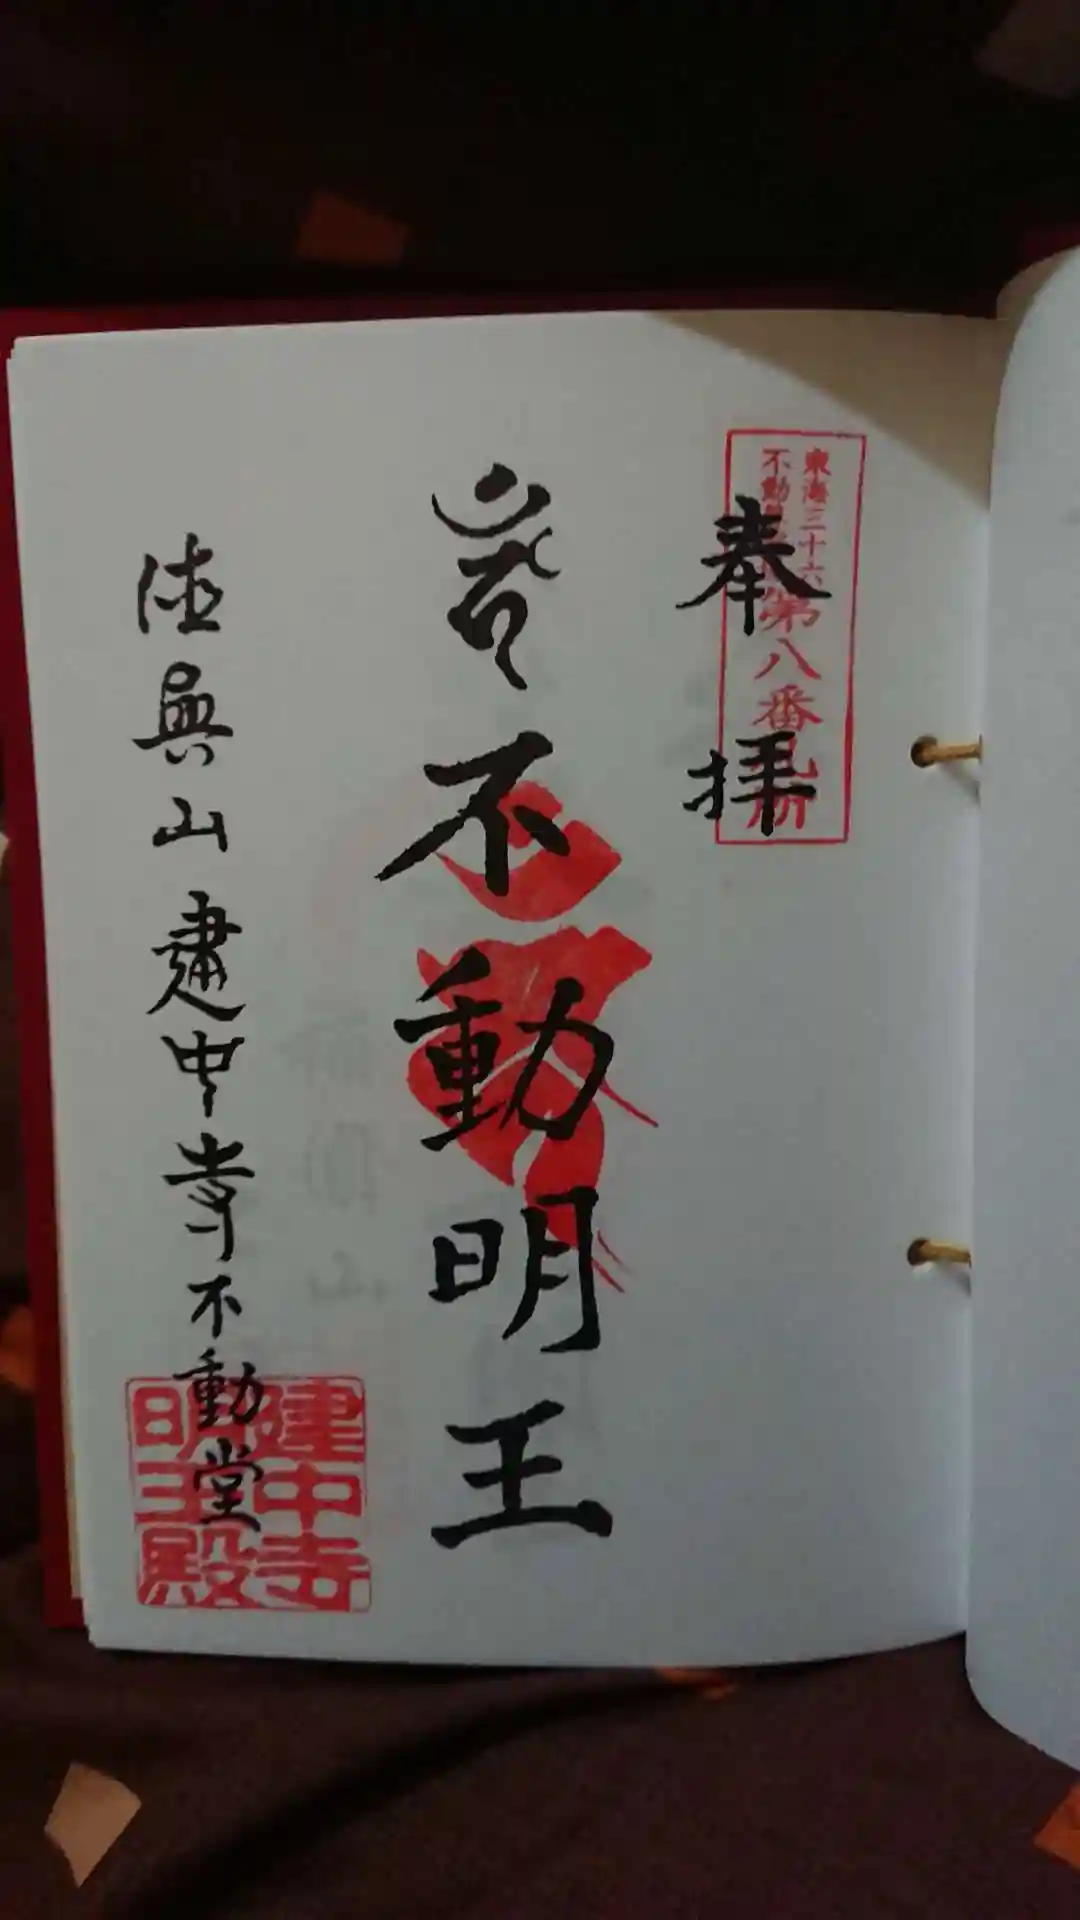 東海三十六
不動尊
第八番札所
奉拝
不動明王
徳興山建中寺不動堂
建中寺
明王殿